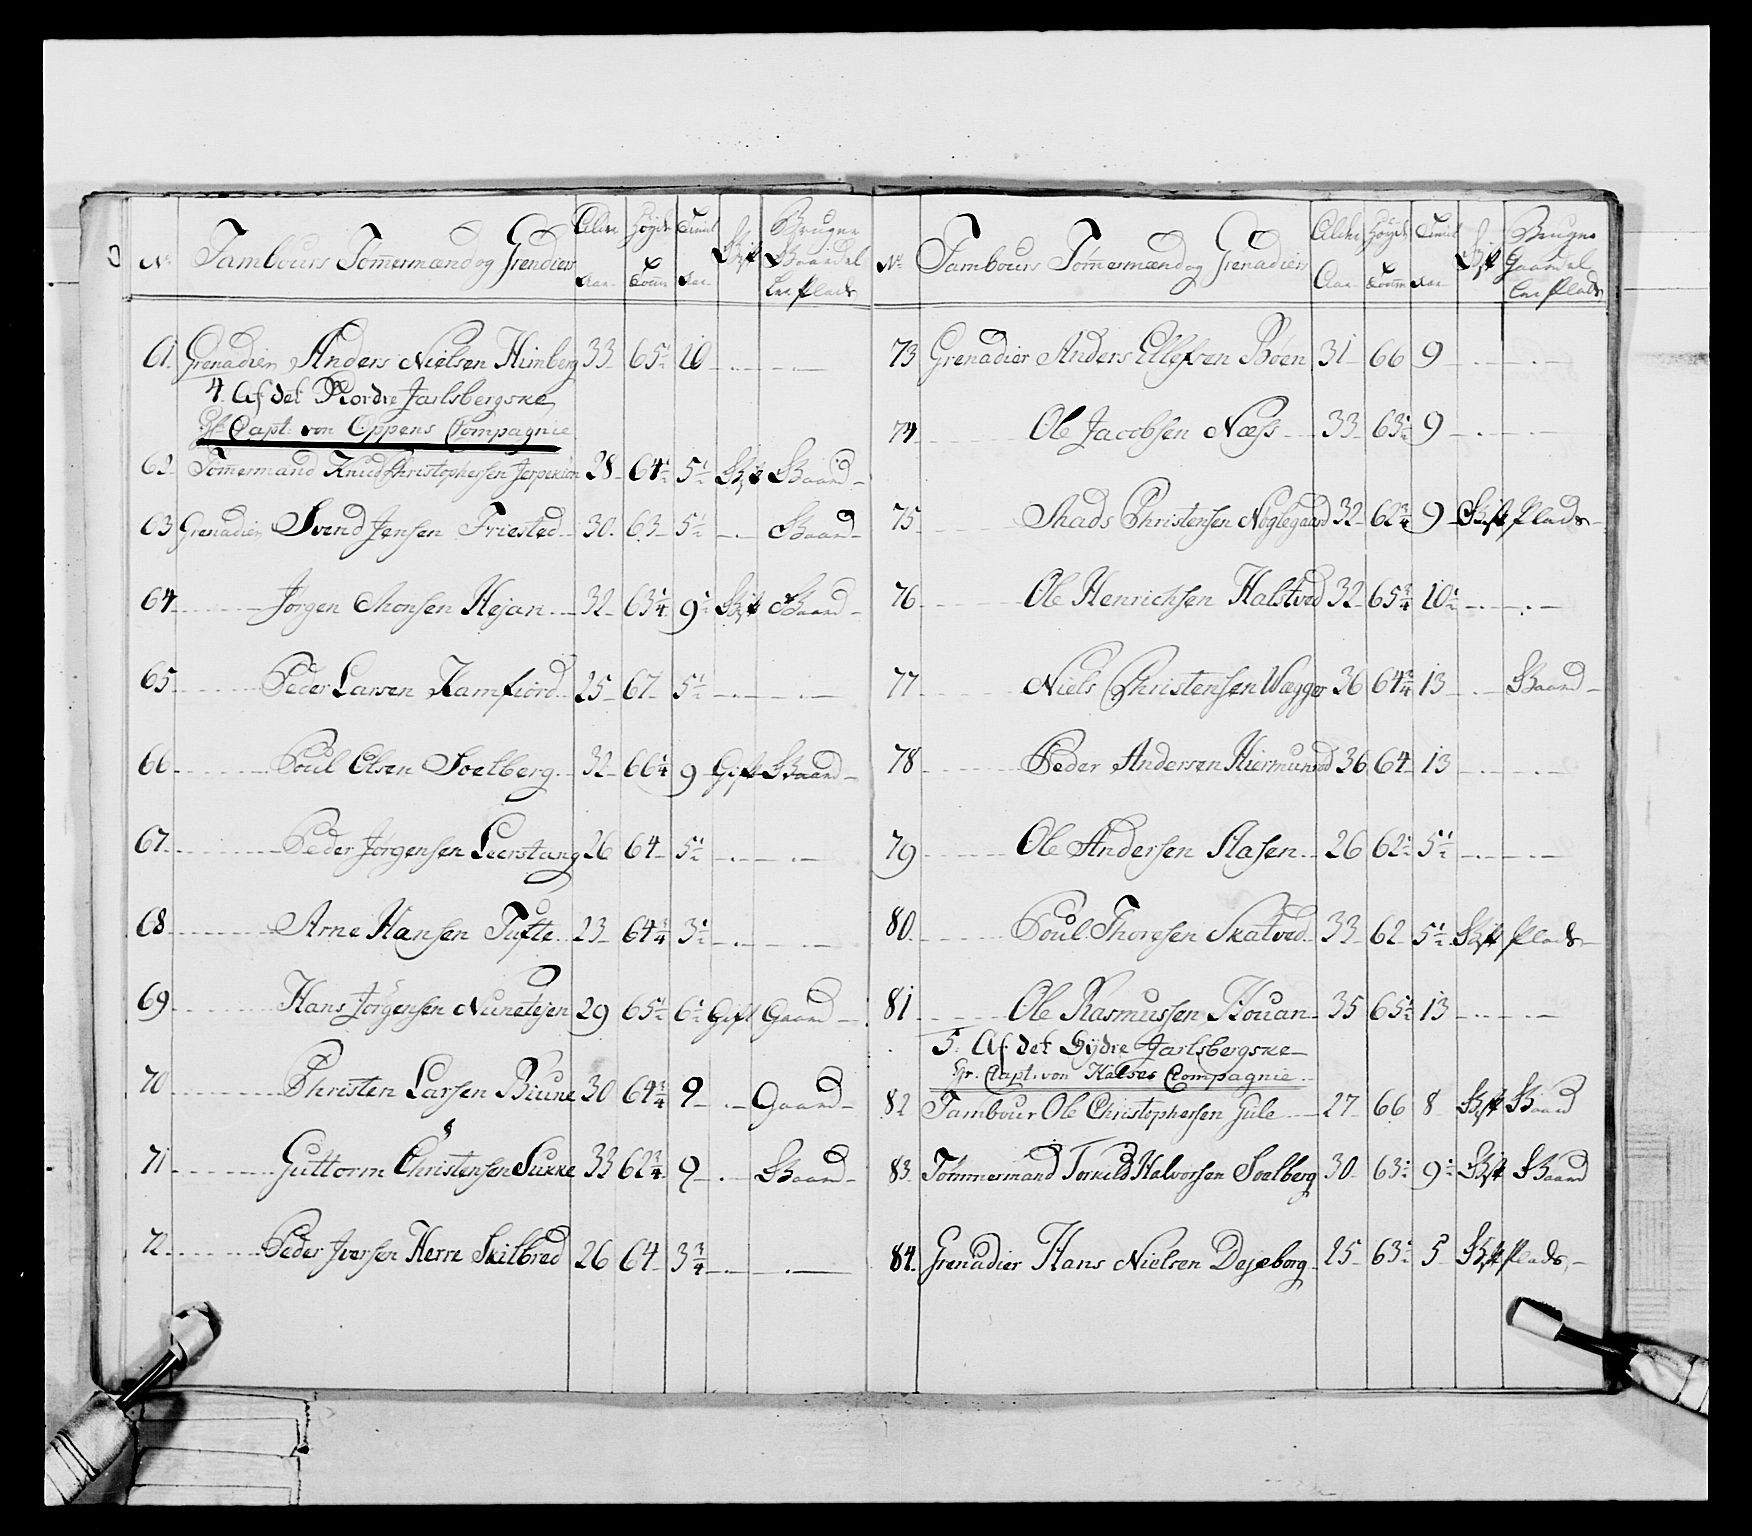 No Tambours Tom̄ermænd og Grendiers Alder Aar Høyde Tom̄er Tient Aar Gift Bruger Gaard el Ler Plads
61 Grenadier Anders Nielsen Himberg 33 65½ 10
4. Af det Nordre Jarlsbergske
Capt: von Oppens Compagnie
62 Tom̄ermand Knud Christophersen 28 64½ 5½ Gift Gaard
63 Grenadier Svend Jensen Friested 30 63 5½ Gaard
64 Jørgen Monsen Hejan 32 63¼ 9½ Gift Gaard
65 Peder Larsen Kamfiord 25 67 5½
66 Poul Olsen Soelberg 32 66¼ 9 Gift Gaard
67 Peder Jørgensen Leerstang 26 64 5½
68 Arne Hansen Tufte 23 64¾ 3½
69 Hans Jørgensen 29 65½ 6½ Gift Gaard
70 Christen Larsen Biune 30 64¾ 9 Gaard
71 Guttorm Christensen Sukke 33 62¾ 9 Gaard
72 Peder Iversen Herre Skilbred 26 64 3¾
No Tambours Tom̄ermænd og Grenadiers Alder Aar Høyde Tom̄ Tient Aar Gift Bruger Gaard el Ler Plads
73 Grenadier Anders Ellefsen Bøen 31 66 9
74 Ole Jacobsen Næss 33 63½ 9
75 Mads Christensen Nøglegaard 32 62¾ 9 Gift Plads
76 Ole Henrichsen Halstved 32 65¾ 10½
77 Niels Christensen Wegger 36 64¾ 13 Gaard
78 Peder Andersen Hiermunrød 36 64 13
79 Ole Andersen Aasen 26 62½ 5½
80 Poul Thoresen Skatved 33 62 5½ Gift Plads
81 Ole Rasmussen Kouan 35 65½ 13
5. Af det Sydre Jarlsbergske
Hr. Capt. von Kalsøe Compagnie
82 Tambour Ole Christophersen Gule 27 66 8 Gift Gaard
83 Tømmermand Torkild Halvorsen Soelberg 30 63½ 9½ Gift Gaard
84 Grenadier Hans Nielsen Dejeborg 25 63½ 5 Gift Plads